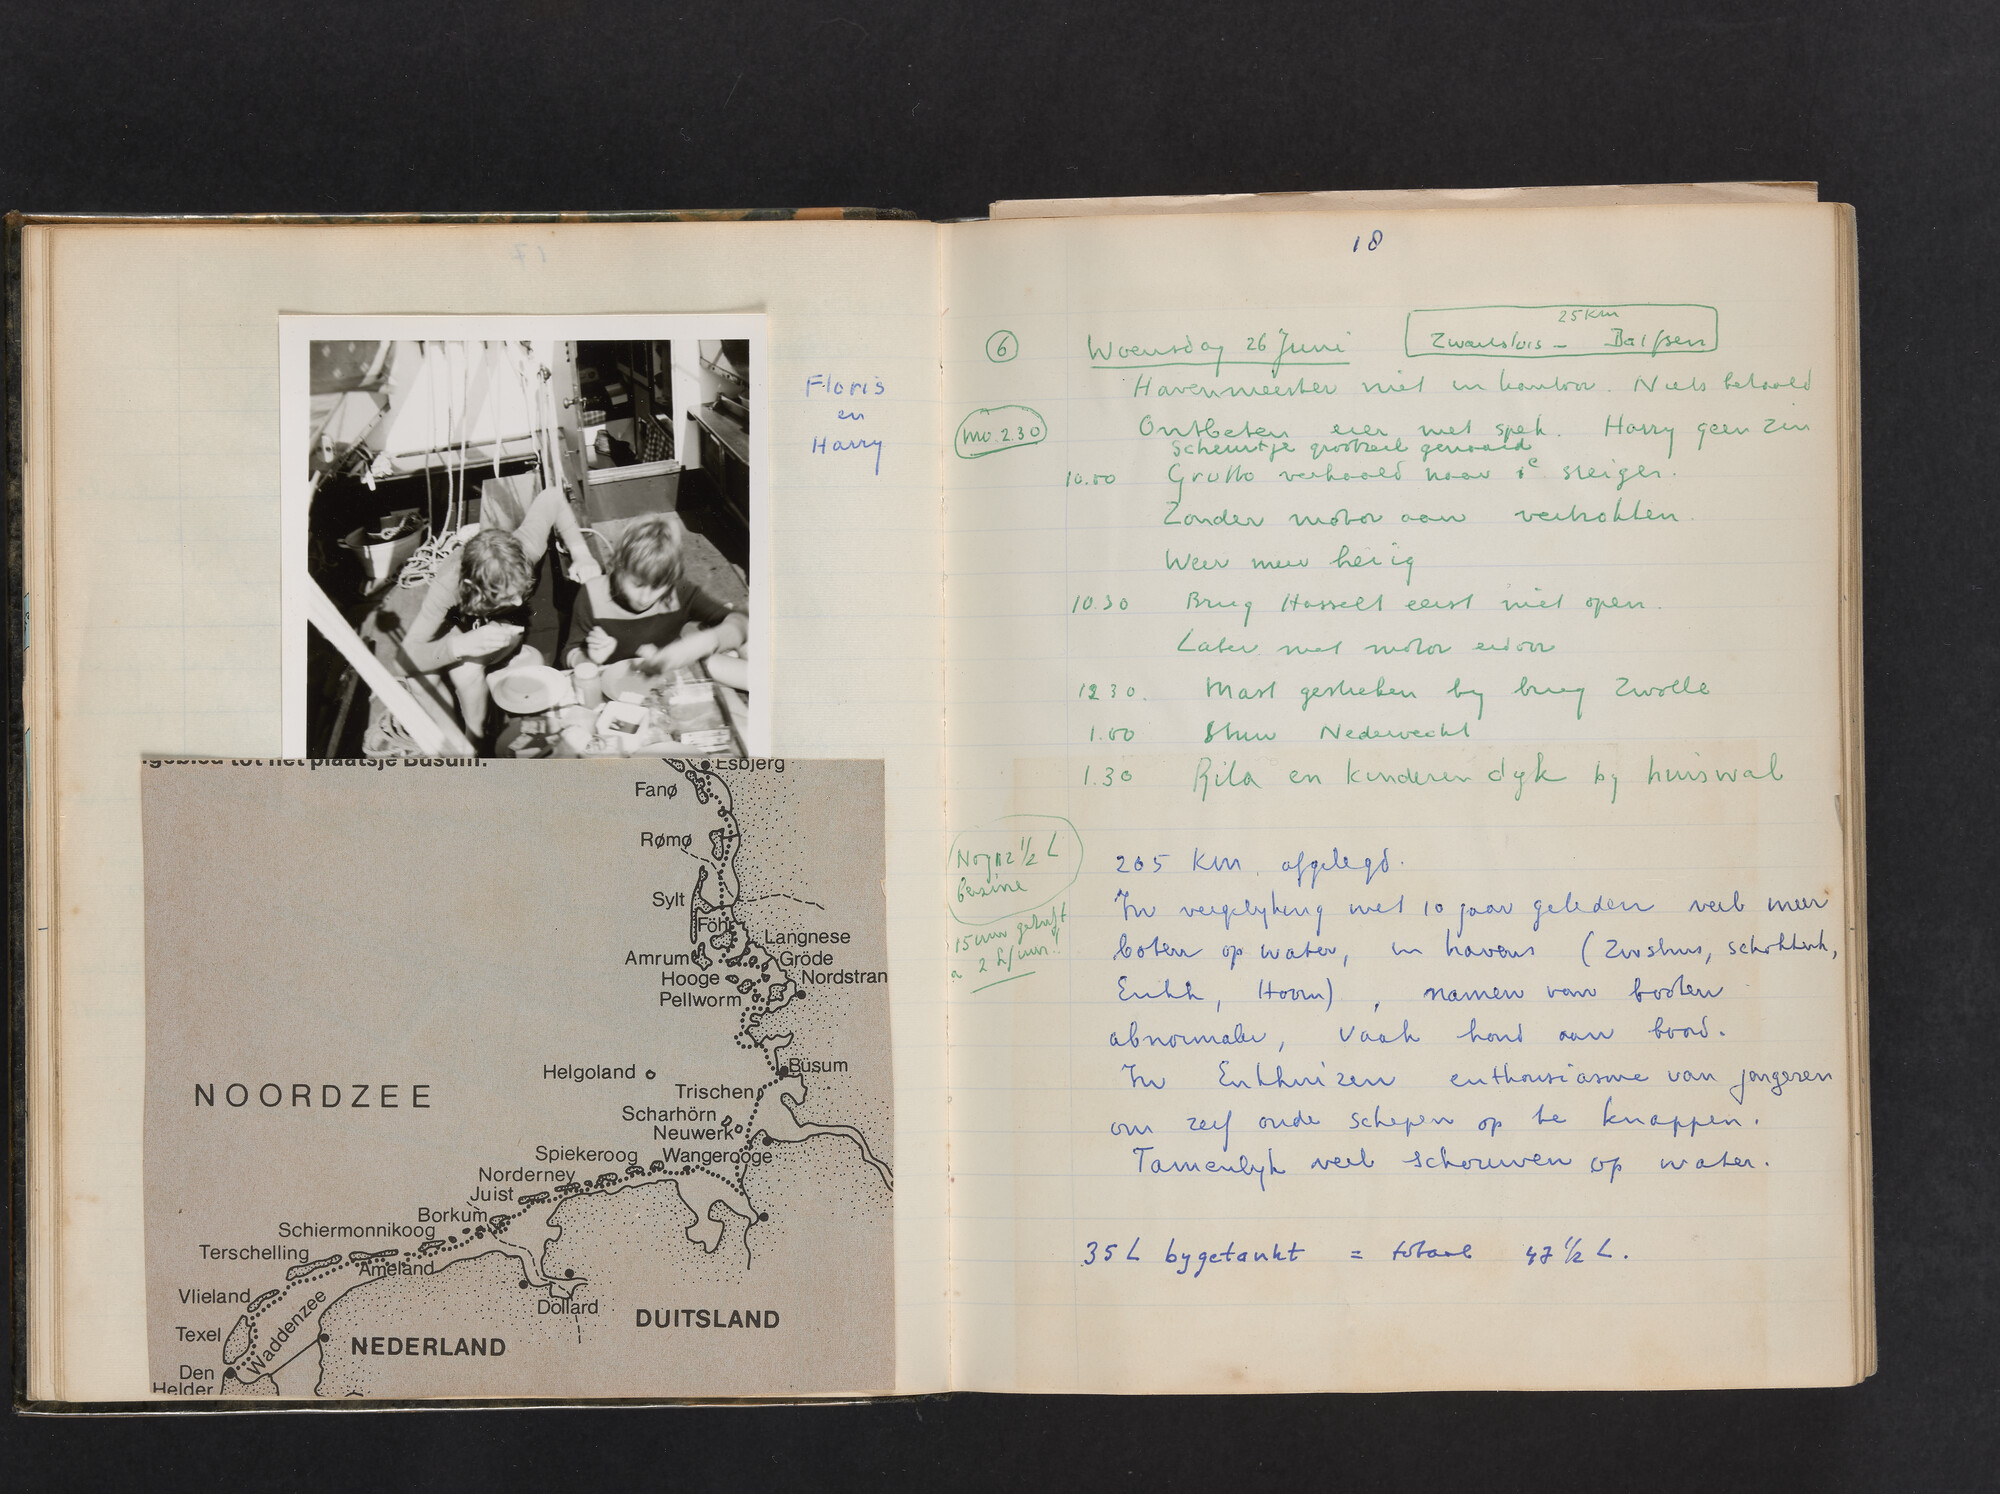 Floris
en
Harry
tot het plaatsje Busum.
Esbjerg
Fanø
Rømø
Sylt
Föhr
Langnese
Amrum
Gröde
Hooge
Nordstran
Pellworm
Helgoland
Büsum
Trischen
NOORDZEE
Scharhörn
Neuwerk
Spiekeroog
Wangerooge
Norderney
Juist
Borkum
Schiermonnikoog
Terschelling
Ameland
Vlieland
Dollard
Waddenzee
Texel
DUITSLAND
NEDERLAND
Den
Helder
18
25 Km
6 Woensdag 26 Juni Zwartsluis -
Havenmeester niet in kantoor. Niets betaald
mo. 2.30 Ontbeten eier met spek. Harry geen zin
Scheurtje grootzeil genaaid
10.00 Grutto verhaald naar steiger.
Zonder motor aan vertrokken.
Weer mee heiig
10.30 Brug Hasselt eerst niet open.
Later met motor erdoor
12 30. Mast gestreken by brug Zwolle
1.00
1.30 Rita en kinderen dyk by huiswal
Nog 12 1/2 L
benzine
15 uur getuft
a 2 L/uur!
205 Km. afgelegd.
In vergelyking met 10 jaar geleden veel meer
boten op water, in havens (
Hoorn), namen van booten
abnormaler, vaak hond aan boord.
In Enkhuizen enthousiasme van jongeren
om zelf oude schepen op te knappen.
Tamenlyk veel schouwen op water.
35 L bygetankt = totaal 47 1/2 L.